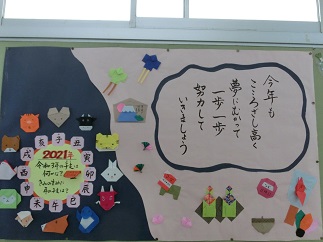 今年も
こころざし高く
夢にむかって
一歩一歩
努力して
いきましょう
2021年
令和3年の干支は
何かな?
子
丑
寅
卯
辰
巳
午
未
申
酉
戌
亥